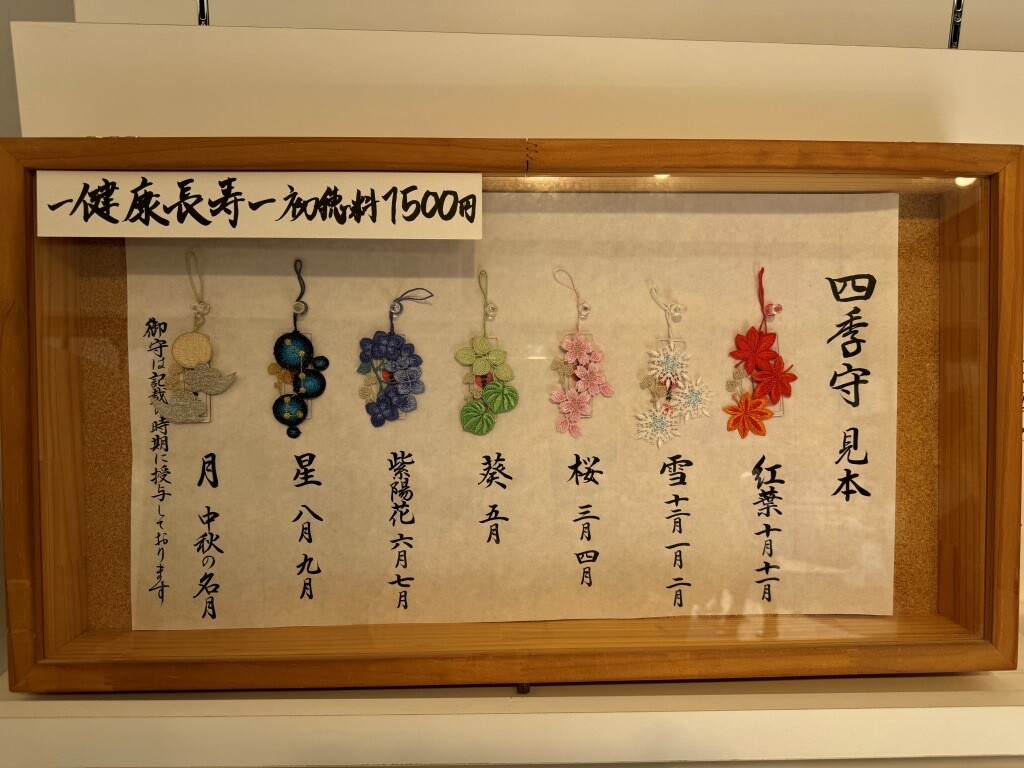 一健康長寿一 初穂料1500円
四季守 見本
紅葉 十月十一月
雪 十二月 一月 二月
桜 三月 四月
葵 五月
紫陽花 六月 七月
星 八月 九月
月 中秋の名月
御守は記載の時期に授与しております